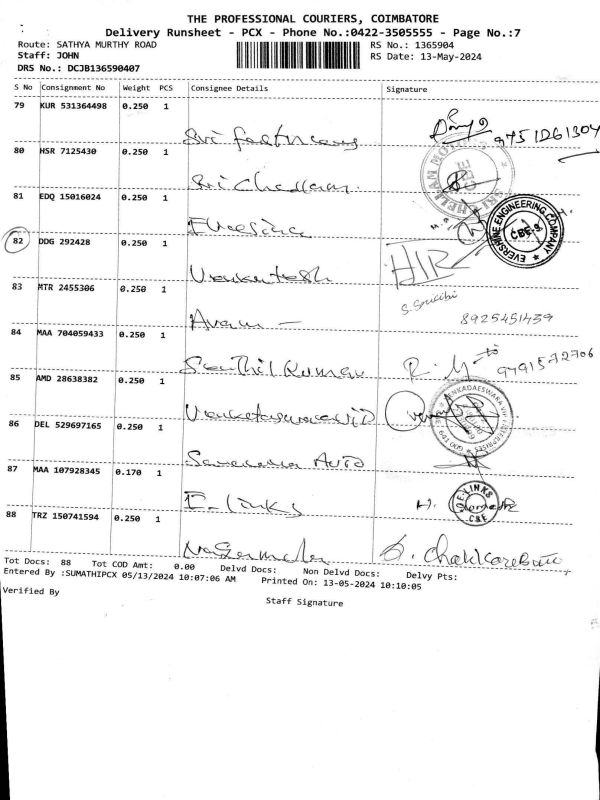 THE PROFESSIONAL COURIERS, COIMBATORE
Delivery Runsheet - PCX - Phone No.:0422-3505555 - Page No.:7
Route: SATHYA MURTHY ROAD RS No.: 1365904
Staff: JOHN RS Date: 13-May-2024
DRS No.: DCJB136590407
S No Consignment No Weight PCS Consignee Details Signature
79 KUR 531364498 0.250 1
9751261304
80 HSR 7125430 0.250 1
Sri Chellam
81 EDQ 15016024 0.250 1
EVERSHINE ENGINEERING COMPANY CBE-9
82 DDG 292428 0.250 1
Venkatesh
83 MTR 2455306 0.250 1
8925451439
84 MAA 704059433 0.250 1
Senthil Kumar
9791572706
85 AMD 28638382 0.250 1
86 DEL 529697165 0.250 1
Saravana Auto
87 MAA 107928345 0.170 1
E-links
E-LINKS CBE
88 TRZ 150741594 0.250 1
Tot Docs: 88 Tot COD Amt: 0.00 Delvd Docs: Non Delvd Docs: Delvy Pts:
Entered By :SUMATHIPCX 05/13/2024 10:07:06 AM Printed On: 13-05-2024 10:10:05
Verified By
Staff Signature